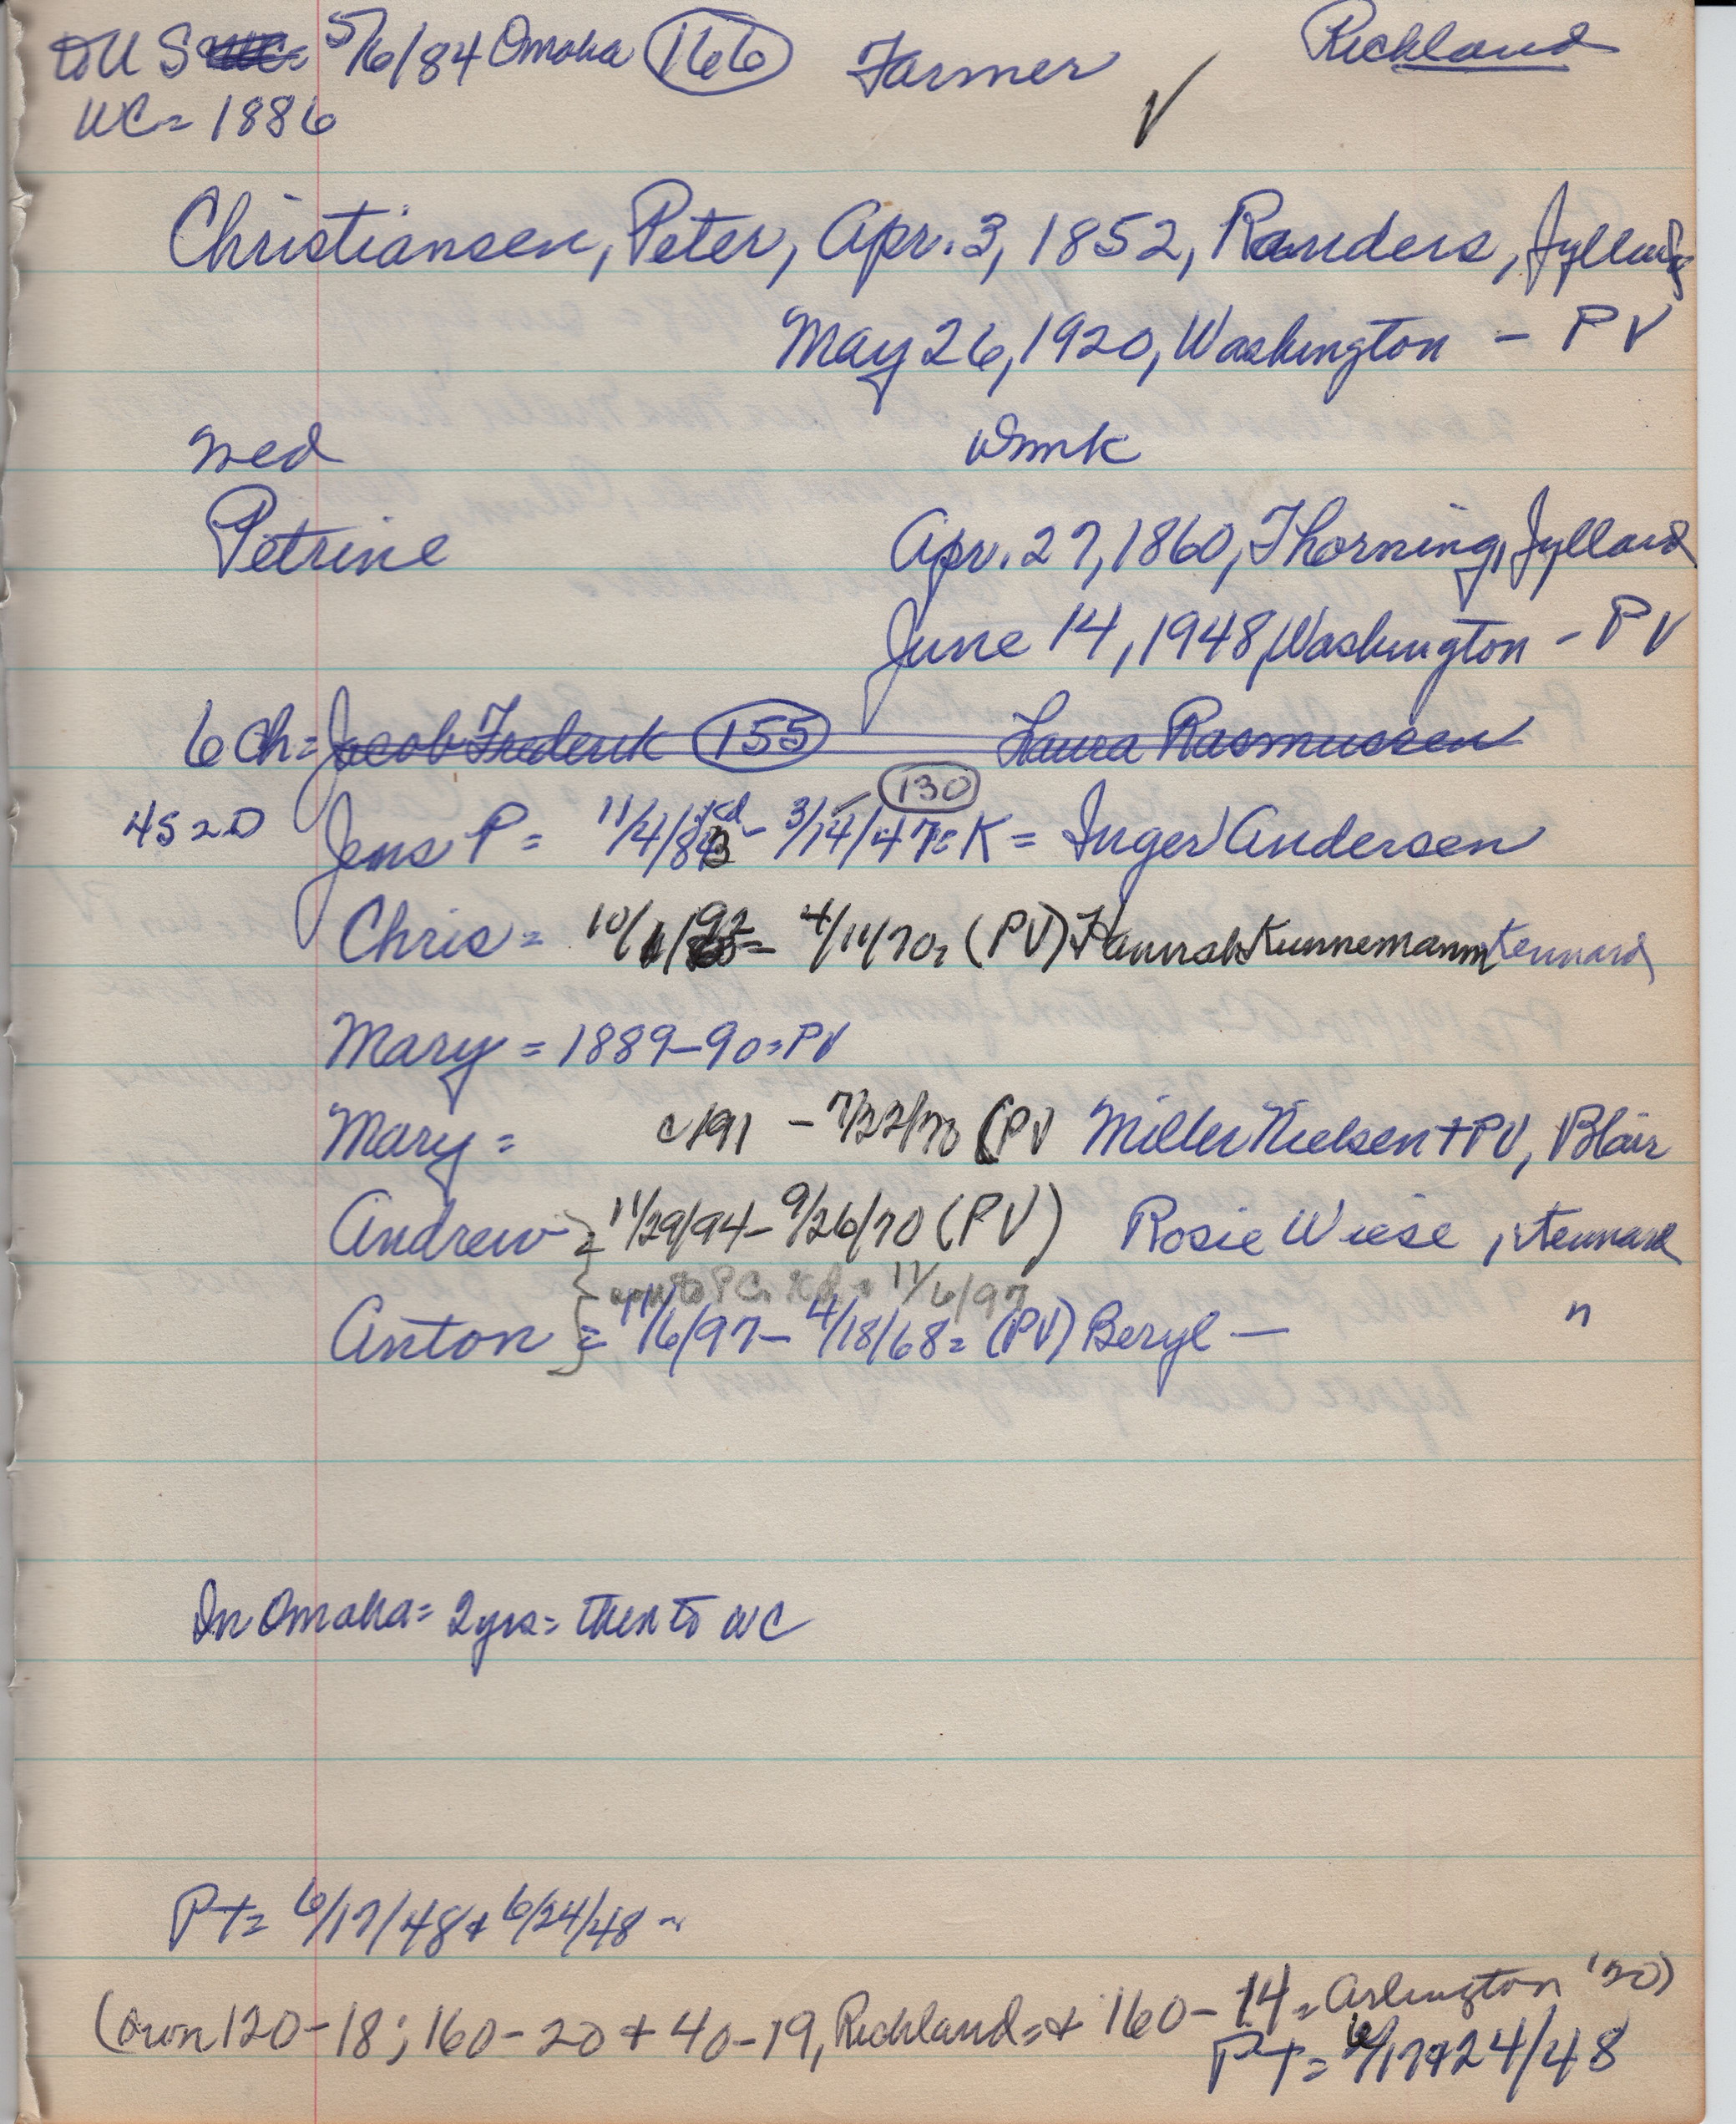 to U S 5/6/84 Omaha 166 Farmer Richland
WC = 1886
Christiansen, Peter, Apr. 3, 1852, Randers, Jylland
May 26, 1920, Washington - PV
med Dmk
Petrine Apr. 27, 1860, Thorning, Jylland
June 14, 1948, Washington - PV
6 Ch = Jacob Frederik 155 Laura Rasmussen
130
4S 2D Jens P = 11/4/83 - 3/14/47 = K = Inger Andersen
Chris = 10/1/92 - 4/11/70 = (PV) Hannah Kunnemann Kennard
Mary = 1889-90 = PV
Mary = c/91 - 7/22/70 (PV Miller Nielsen + PV, Blair
Andrew = 11/29/94 - 9/26/70 (PV) Rosie Wiese, Kennard
PC 11/6/97
Anton = 11/6/97 - 4/18/68 = (PV) Beryl — "
In Omaha = 2 yrs = then to WC
PT = 6/17/48 + 6/24/48 -
(Own 120-18; 160-20 + 40-19, Richland = + 160-14 = Arlington '20)
PT = 6/17+24/48